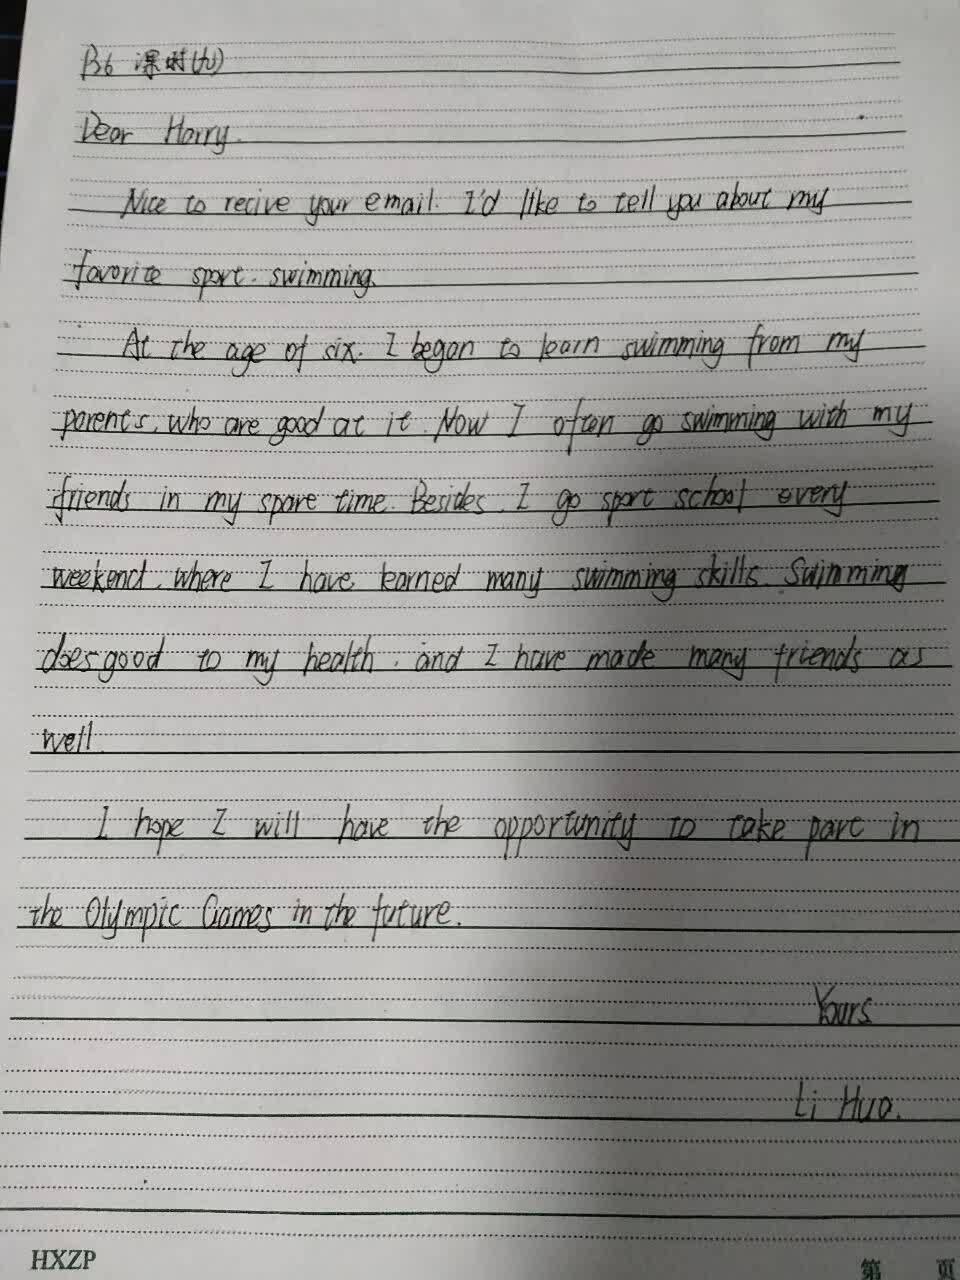 B6 课时(九)
Dear Harry.
Nice to recive your email. I'd like to tell you about my
favorite sport. swimming.
At the age of six. I began to learn swimming from my
parents, who are good at it. Now I often go swimming with my
friends in my spare time. Besides, I go sport school every
weekend, where I have learned many swimming skills. Swimming
does good to my health, and I have made many friends as
well.
I hope I will have the opportunity to take part in
the Olympic Games in the future.
Yours
Li Hua.
HXZP
第 页